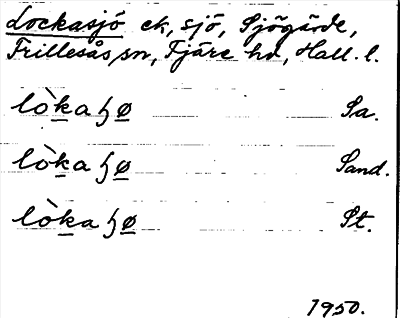 Lockasjö ek, sjö, Sjögärde,
Frillesås sn, Fjäre hd, Hall. l.
lòkaɧø Sa.
lòkaɧø Sand.
lòkaɧø St.
1950.